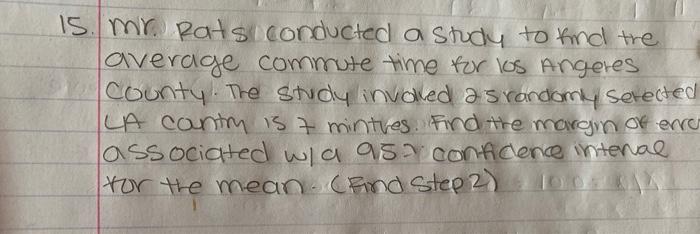 15. Mr. Rats conducted a study to find the
average commute time for los Angeles
County. The study involved 25 randomly selected
LA county is 7 mintues. Find the margin of erro
associated w/a 95% confidence interval
for the mean. (Find Step 2)